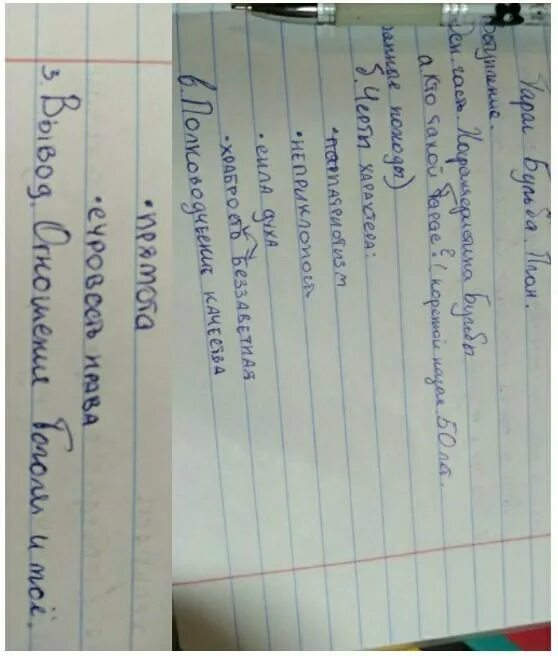 Тарас Бульба. План.
Вступление.
Осн. часть. Характеристика Бульбы
а. Кто такой Тарас? (коретой казак 50 лет.
ранные походы)
б. Черты характера:
•патриотизм
•неприклоность
•сила духа
•храбрость беззаветная
в. Полководческие качества
•прямота
•суровость нрава
3. Вывод. Отношение Гоголя и моё.